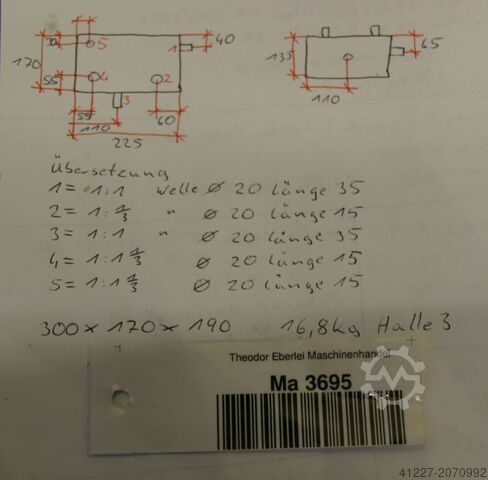 30 5 1 40 65
170 4 2 135
55 3
55 60 110
110
225
Übersetzung
1 = 1:1 Welle ø 20 länge 35
2 = 1:1/3 " ø 20 länge 15
3 = 1:1 " ø 20 länge 35
4 = 1:1 1/3 ø 20 länge 15
5 = 1:1 1/3 ø 20 länge 15
300 x 170 x 190 16,8kg Halle 3
Theodor Eberlei Maschinenhandel
Ma 3695
41227-2070992